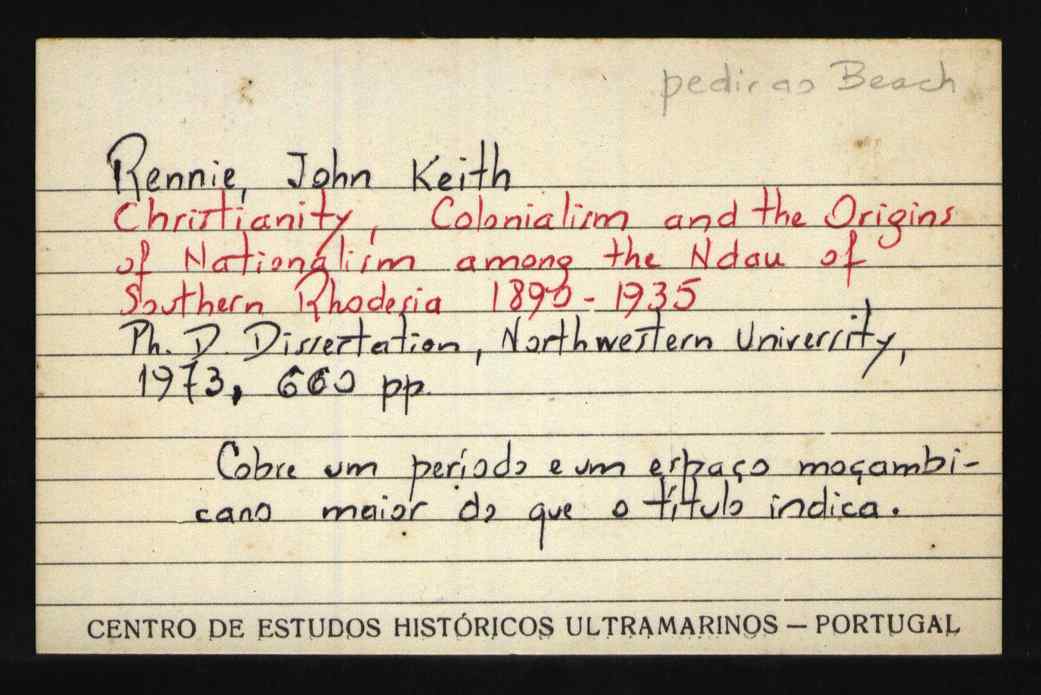 pedir ao Beach
Rennie, John Keith
Christianity, Colonialism and the Origins
of Nationalism among the Ndau of
Southern Rhodesia 1890-1935
Ph. D. Dissertation, Northwestern University,
1973, 660 pp.
Cobre um período e um espaço moçambi-
cano maior do que o título indica.
CENTRO DE ESTUDOS HISTÓRICOS ULTRAMARINOS — PORTUGAL